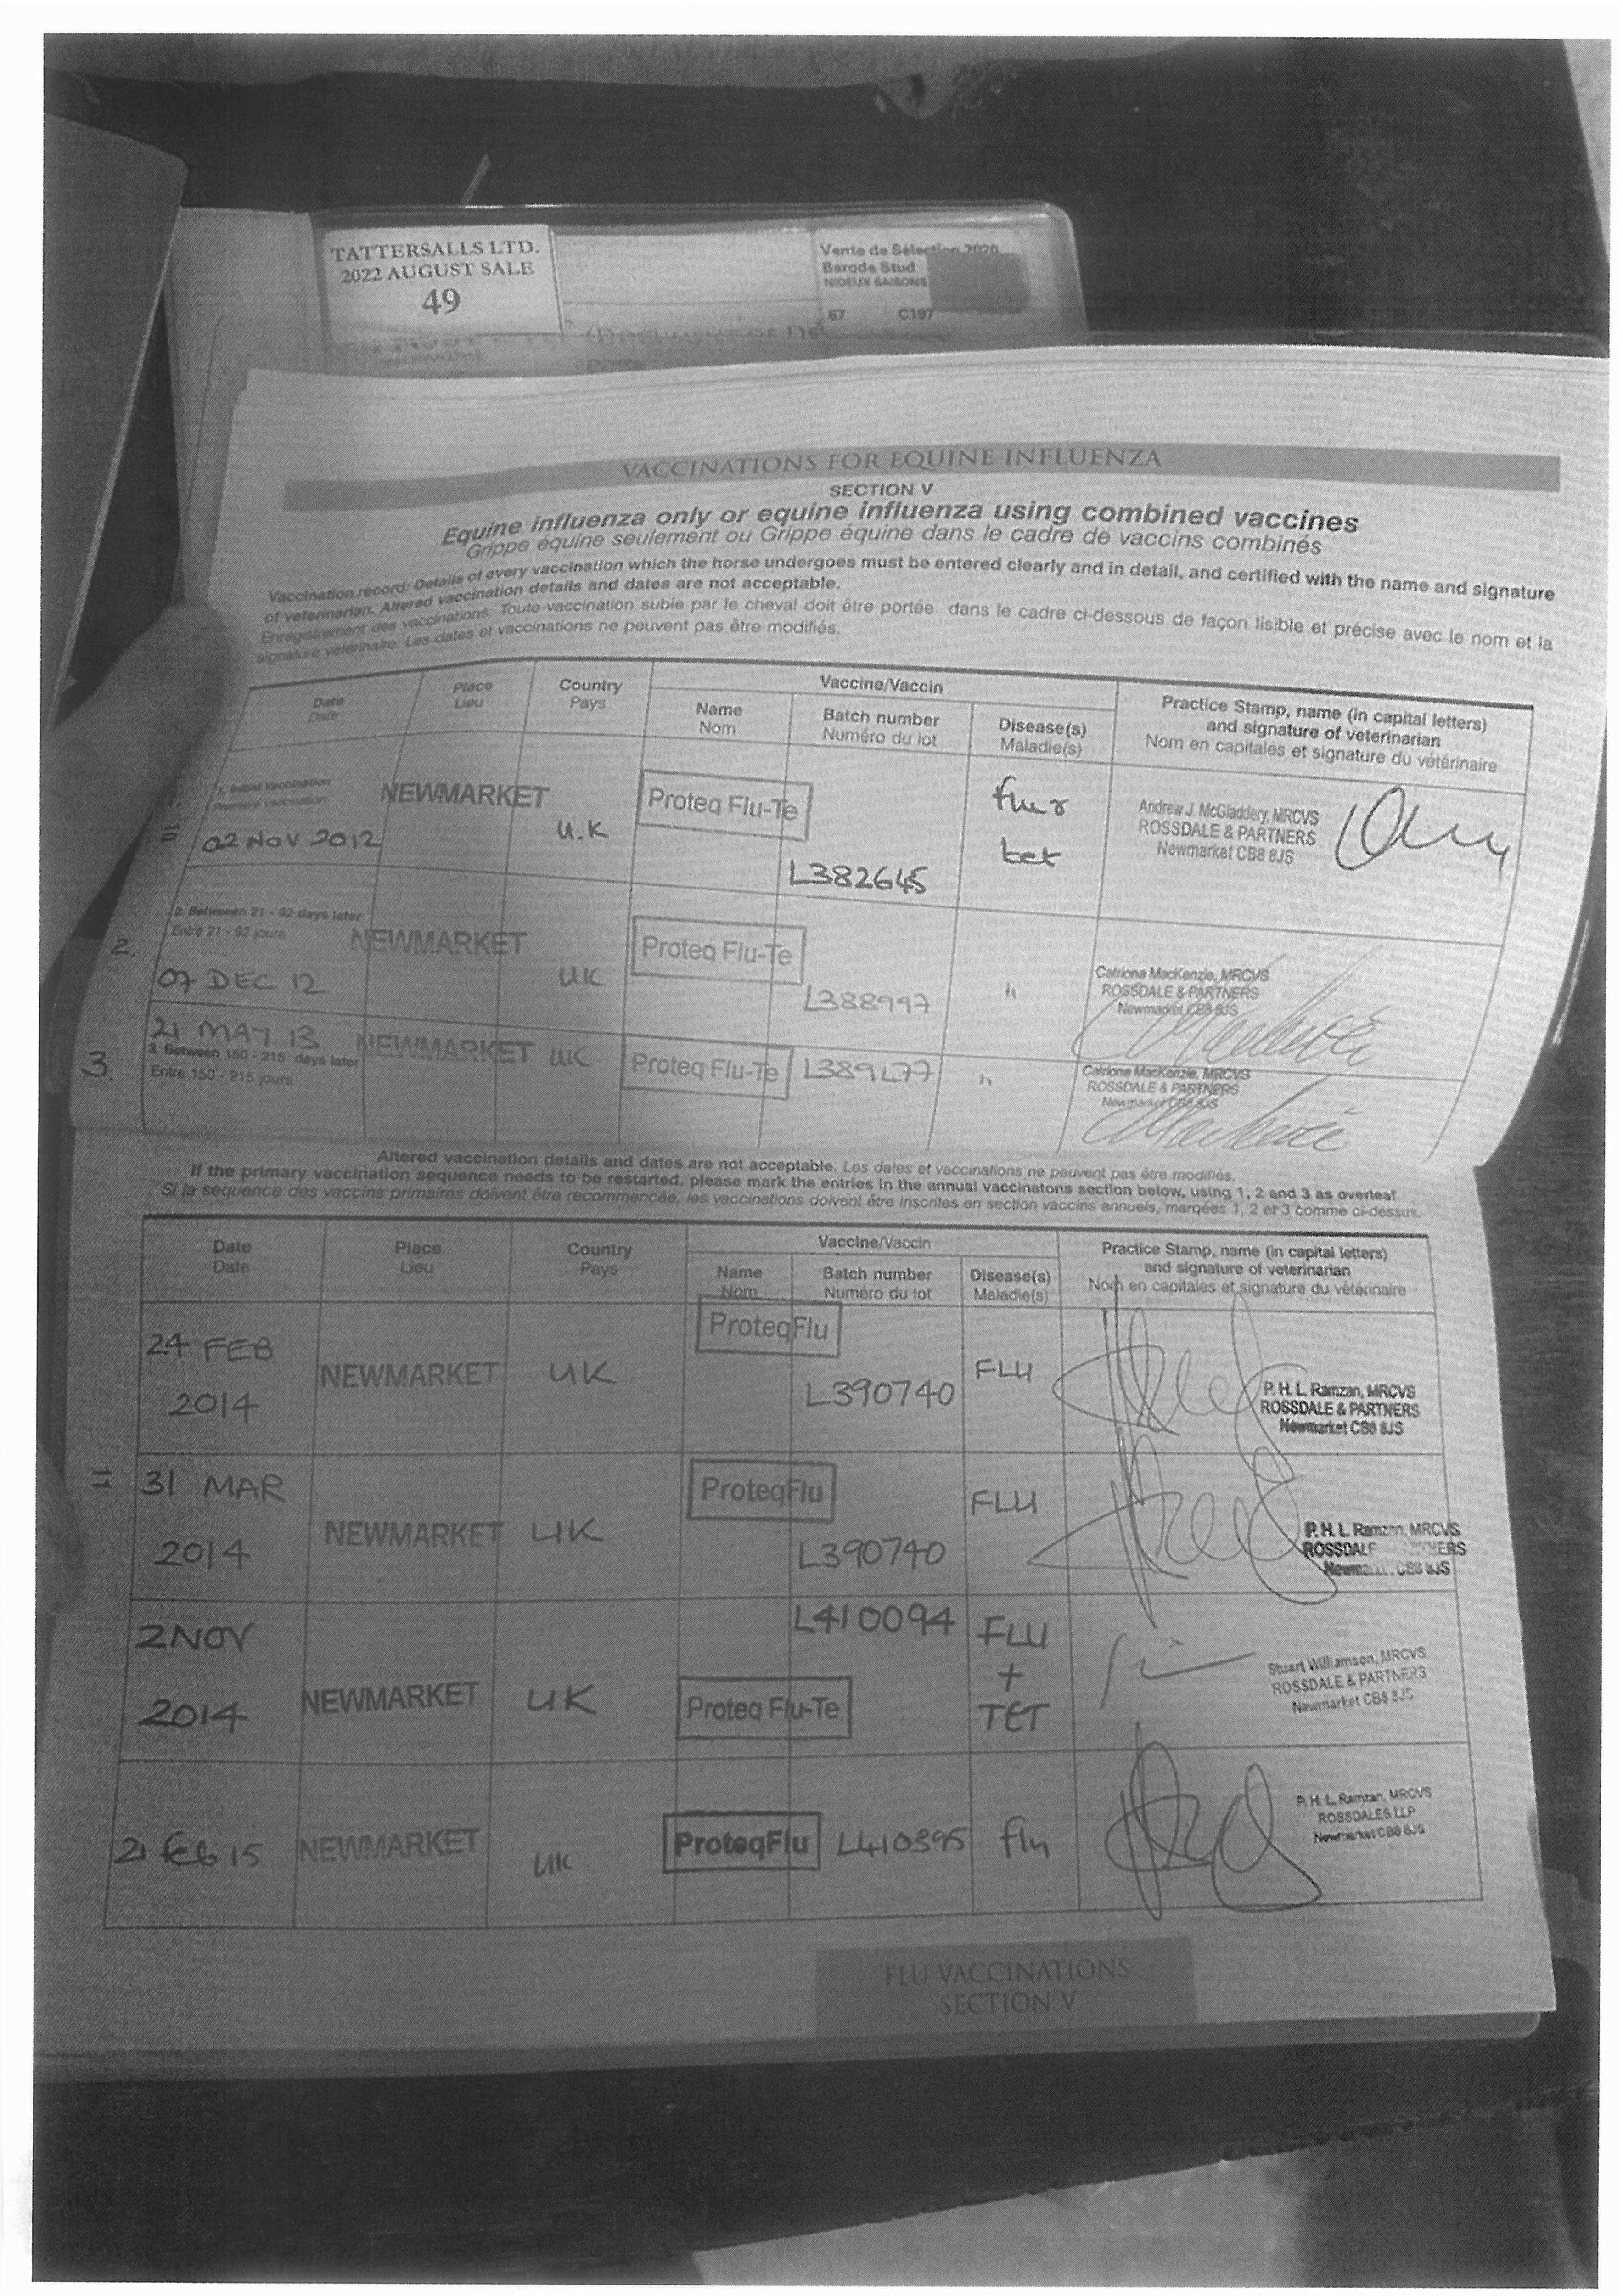 TATTERSALLS LTD.
2022 AUGUST SALE
49
Vente de Sélection 2020
Baroda Stud
67 C197
VACCINATIONS FOR EQUINE INFLUENZA
SECTION V
Equine influenza only or equine influenza using combined vaccines
Grippe équine seulement ou Grippe équine dans le cadre de vaccins combinés
Vaccination record: Details of every vaccination which the horse undergoes must be entered clearly and in detail, and certified with the name and signature
of veterinarian. Altered vaccination details and dates are not acceptable.
Enregistrement des vaccinations: Toute vaccination subie par le cheval doit être portée dans le cadre ci-dessous de façon lisible et précise avec le nom et la
signature vétérinaire. Les dates et vaccinations ne peuvent pas être modifiés.
Date Place Country Vaccine/Vaccin Practice Stamp, name (in capital letters)
Date Lieu Pays Name Batch number Disease(s) and signature of veterinarian
Nom Numéro du lot Maladie(s) Nom en capitales et signature du vétérinaire
1. Initial Vaccination
NEWMARKET Proteq Flu-Te flu & Andrew J. McGladdery, MRCVS
02 NOV 2012 U.K tet ROSSDALE & PARTNERS
L382645 Newmarket CB8 8JS
2. Between 21 - 92 days later
2. Entre 21 - 92 jours NEWMARKET Proteq Flu-Te Catriona MacKenzie, MRCVS
07 DEC 12 UK L388997 " ROSSDALE & PARTNERS
Newmarket CB8 8JS
21 MAY 13 NEWMARKET UK Proteq Flu-Te L389477 " Catriona MacKenzie, MRCVS
3. 3. Between 150 - 215 days later ROSSDALE & PARTNERS
Entre 150 - 215 jours Newmarket CB8 8JS
Altered vaccination details and dates are not acceptable. Les dates et vaccinations ne peuvent pas être modifiés.
If the primary vaccination sequence needs to be restarted, please mark the entries in the annual vaccinatons section below, using 1, 2 and 3 as overleaf
Si la sequence des vaccins primaires doivent être recommencée, les vaccinations doivent être inscrites en section vaccins annuels, marqées 1, 2 et 3 comme ci-dessus.
Date Place Country Vaccine/Vaccin Practice Stamp, name (in capital letters)
Date Lieu Pays Name Batch number Disease(s) and signature of veterinarian
Nom Numéro du lot Maladie(s) Nom en capitales et signature du vétérinaire
24 FEB ProteqFlu FLU
2014 NEWMARKET UK L390740 P. H. L. Ramzan, MRCVS
ROSSDALE & PARTNERS
Newmarket CB8 8JS
31 MAR ProteqFlu FLU
2014 NEWMARKET UK L390740 P. H. L. Ramzan, MRCVS
2 NOV L410094 FLU
+ Stuart Williamson, MRCVS
2014 NEWMARKET UK Proteq Flu-Te TET ROSSDALE & PARTNERS
Newmarket CB8 8JS
21 Feb 15 NEWMARKET UK ProteqFlu L410395 flu P. H. L. Ramzan, MRCVS
ROSSDALES LLP
Newmarket CB8 8JS
FLU VACCINATIONS
SECTION V